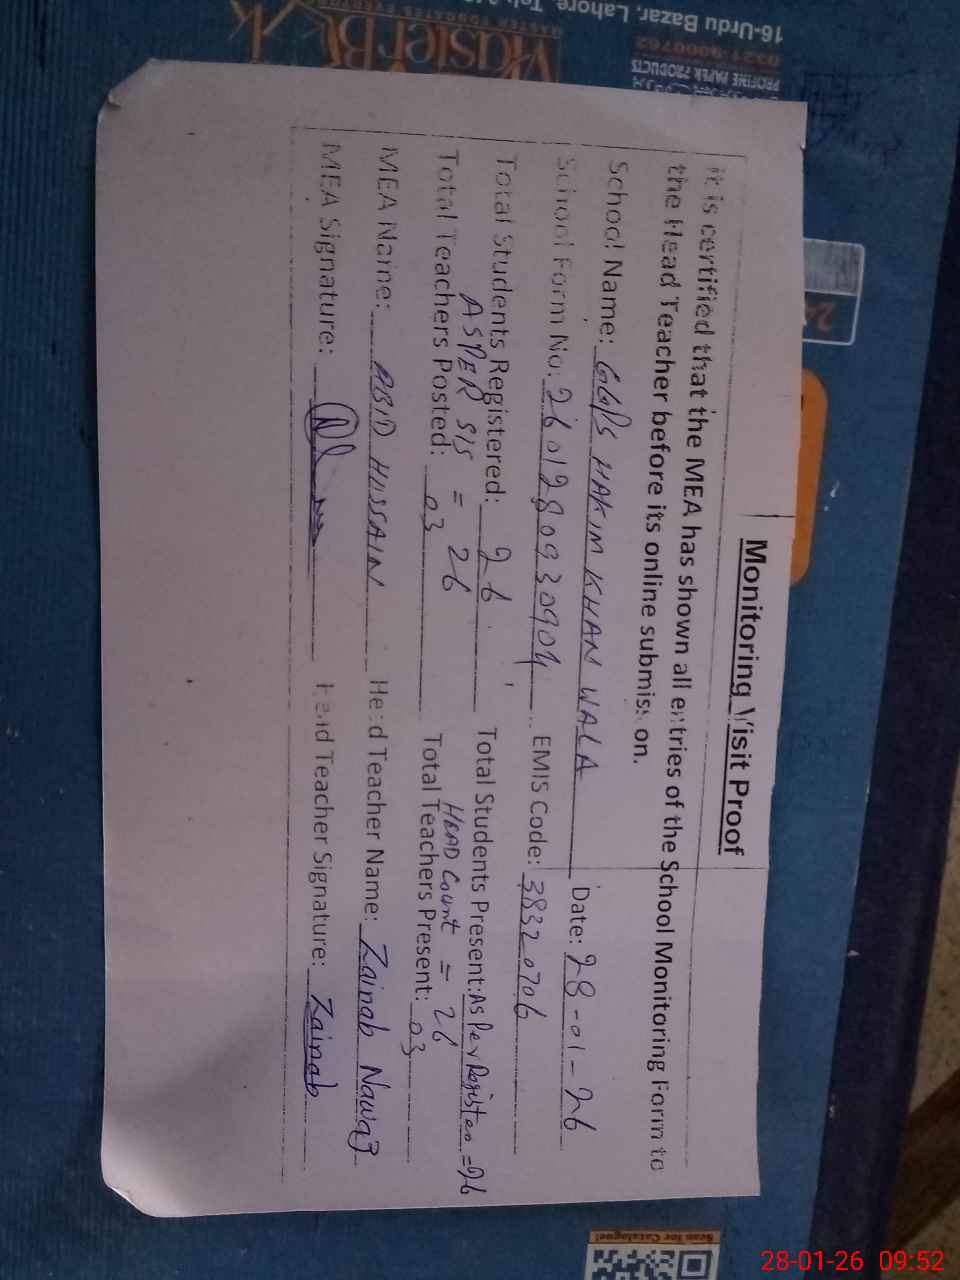 Monitoring Visit Proof
It is certified that the MEA has shown all entries of the School Monitoring Form to
the Head Teacher before its online submission.
School Name: GGPS HAKIM KHAN WALA Date: 28-01-26
School Form No. 2601280930904 EMIS Code: 38320706
Total Students Registered: 26 Total Students Present: As Per Register = 26
AS PER SIS = 26 HEAD Count = 26
Total Teachers Posted: 03 Total Teachers Present: 03
MEA Name: ABID HUSSAIN Head Teacher Name: Zainab Nawaz
MEA Signature: Head Teacher Signature: Zainab
16-Urdu Bazar, Lahore.
0321-8000762
PROFINE PAPER PRODUCTS
MasterBook
Scan for Catalogue!
28-01-26 09:52